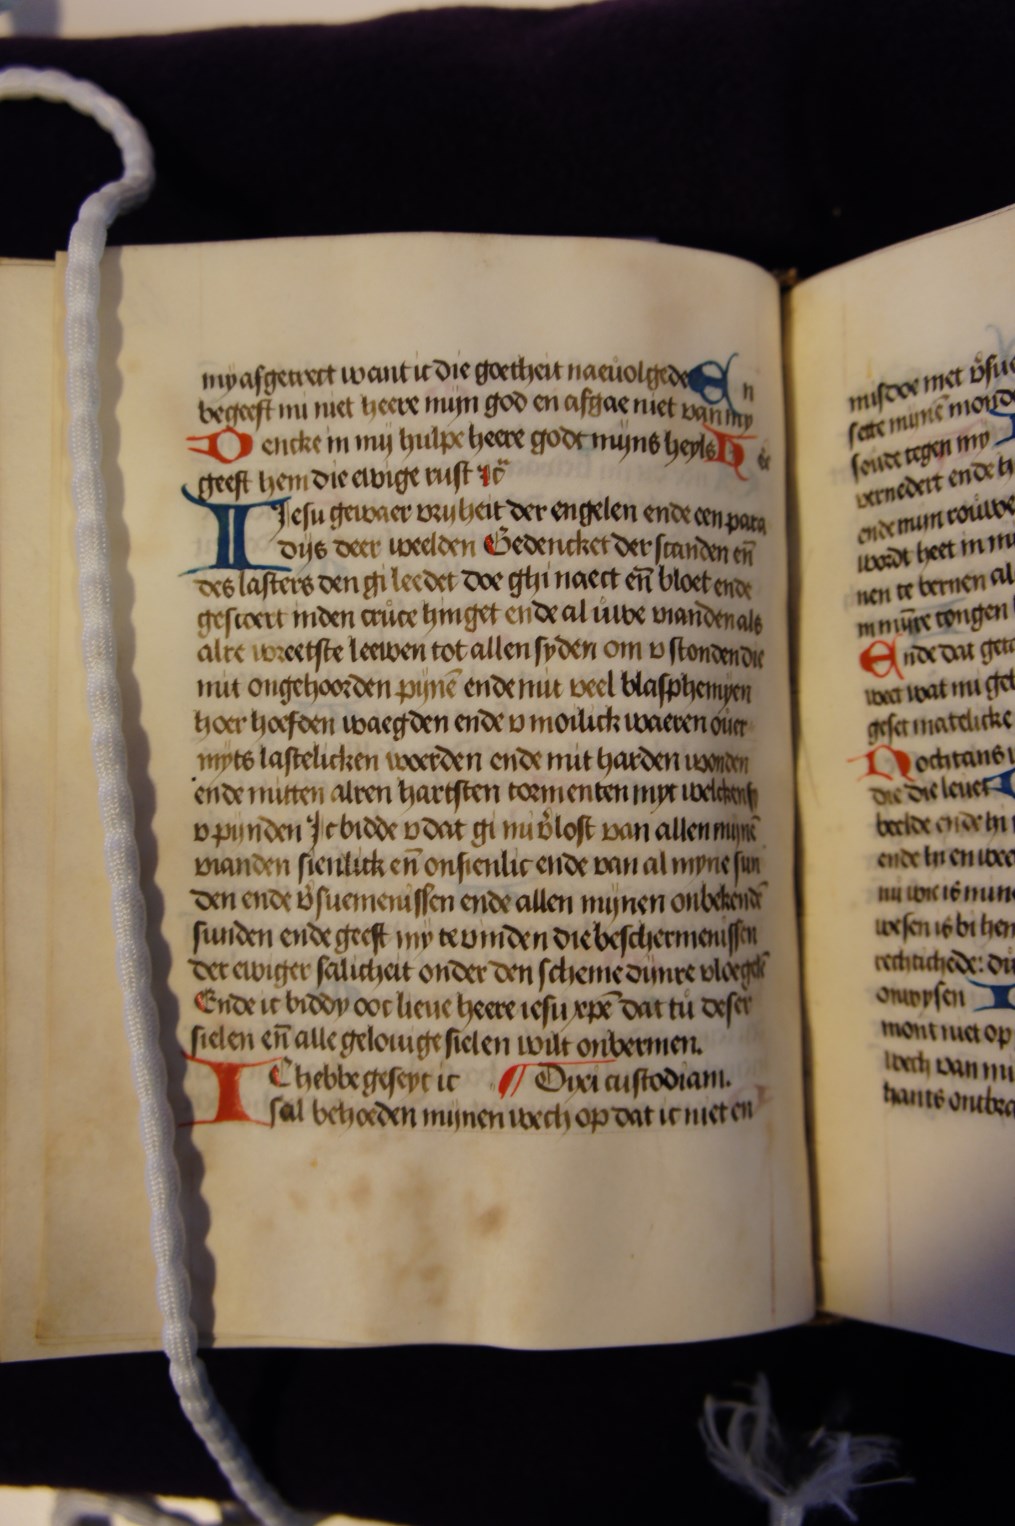 my afgetrect want ic die goetheit naeuolgede En
begeeft mi niet heere mijn god en afgae niet van my
Dencke in mij hulpe heere godt mijns heyls He
geeft hem die ewige rust ⁊c
IJesu gewaer vrijheit der engelen ende een para
dijs deer weelden Gedencket der scanden en̄
des lasters den gi leedet doe ghi naect en̄ bloet ende
gestrect inden cruce hinget ende al uwe vianden als
alre wreetste leewen tot allen syden om v stonden die
mit ongehoorden pijnē ende mit veel blasphemyen
hoer hoefden waegden ende v moilick waeren ouer
myts lastelicken woerden ende mit harden wonden
ende mitten alren hartsten tormenten myt
v pijnden Ic bidde v dat gi mi v̄lost van allen mijnē
vianden sienlick en̄ onsienlic ende van al myne sun
den ende v̄suemenissen ende allen mijnen onbekendē
sunden ende geeft my te vinden die beschermenissen
der ewiger salicheit onder den scheme dijnre vloegelē
Ende ic biddy ooc lieue heere iesu xpē dat tu deser
sielen en̄ alle gelouige sielen wilt ontfermen.
IC hebbe geseyt ic ¶ Dixi custodiam.
sal behoeden mijnen wech op dat ic niet en
misdoe met
sette mijnē
tegen my
vernedert ende
ende mijn rouwe
wordt heet in mi
nen te bernen al
in mijnre tongen
Ende dat
wat mi
geset matelicke
Nochtans
die die leuet
beelde ende in
ende in
mi wie is mijn
wesen is bi hem
rechticheden:
onwysen
mont niet op
wech van mi
hants